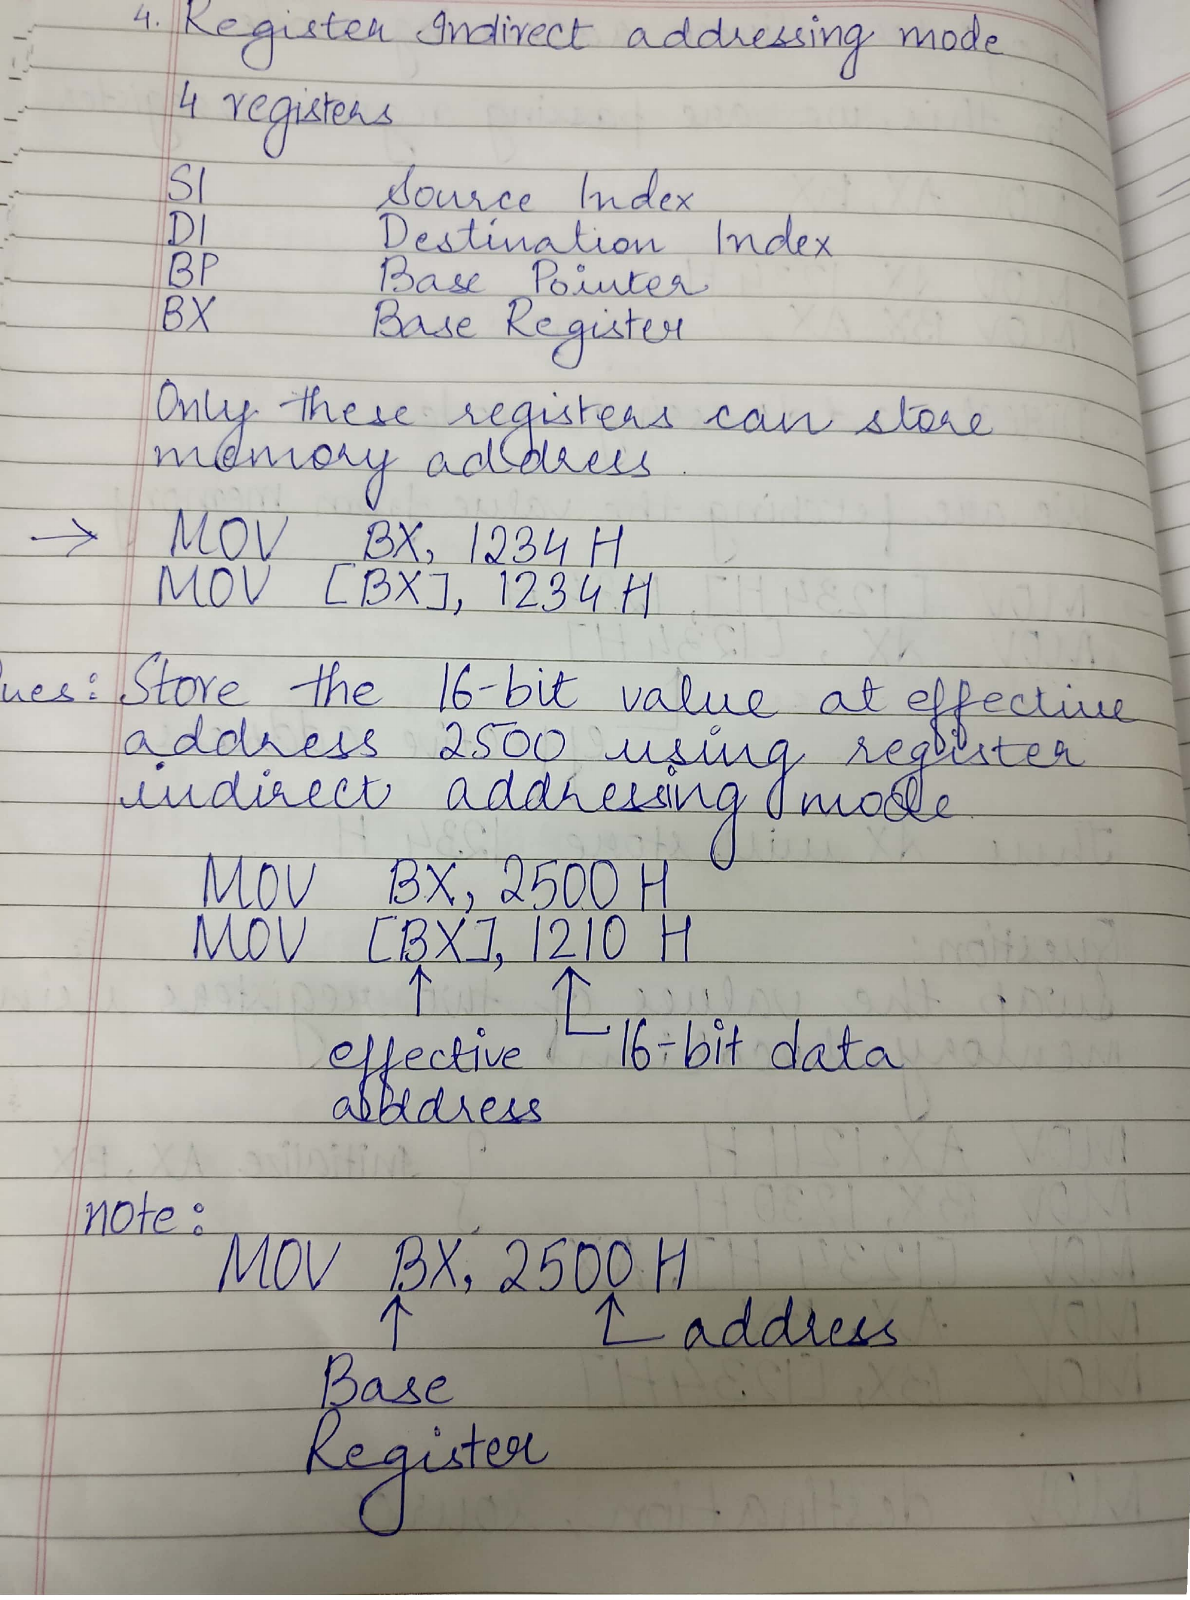 4. Register Indirect addressing mode
4 registers
SI Source Index
DI Destination Index
BP Base Pointer
BX Base Register
Only these registers can store
memory address.
→ MOV BX, 1234 H
MOV [BX], 1234 H
ues: Store the 16-bit value at effective
address 2500 using register
indirect addressing mode
MOV BX, 2500 H
MOV [BX], 1210 H
effective 16-bit data
address
note:
MOV BX, 2500 H
address
Base
Register